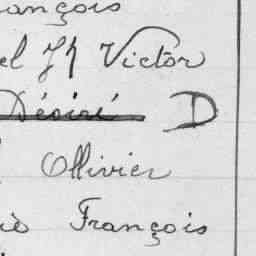 ançois
el Jh Victor
Désiré D
Ollivier
iè François